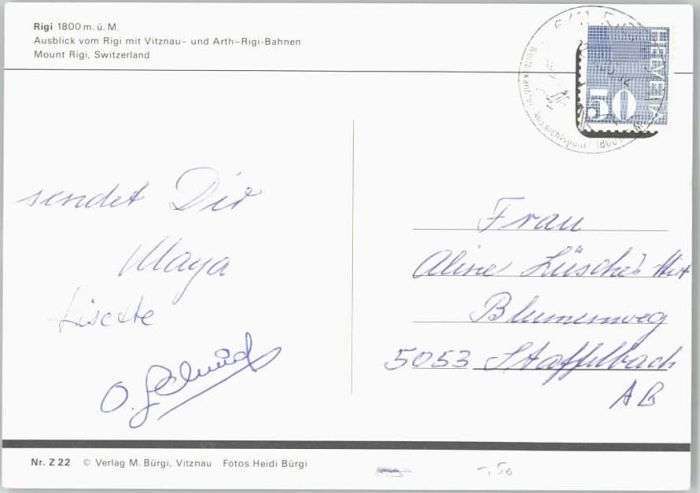 Rigi 1800 m. ü. M.
Ausblick vom Rigi mit Vitznau- und Arth-Rigi-Bahnen
Mount Rigi, Switzerland
HELVETIA
50
sendet Dir
Maya
Lisette
O. Schmid
Frau
Aline Lüscher
Blumenweg
5053 Staffelbach
Nr. Z 22 © Verlag M. Bürgi, Vitznau Fotos Heidi Bürgi